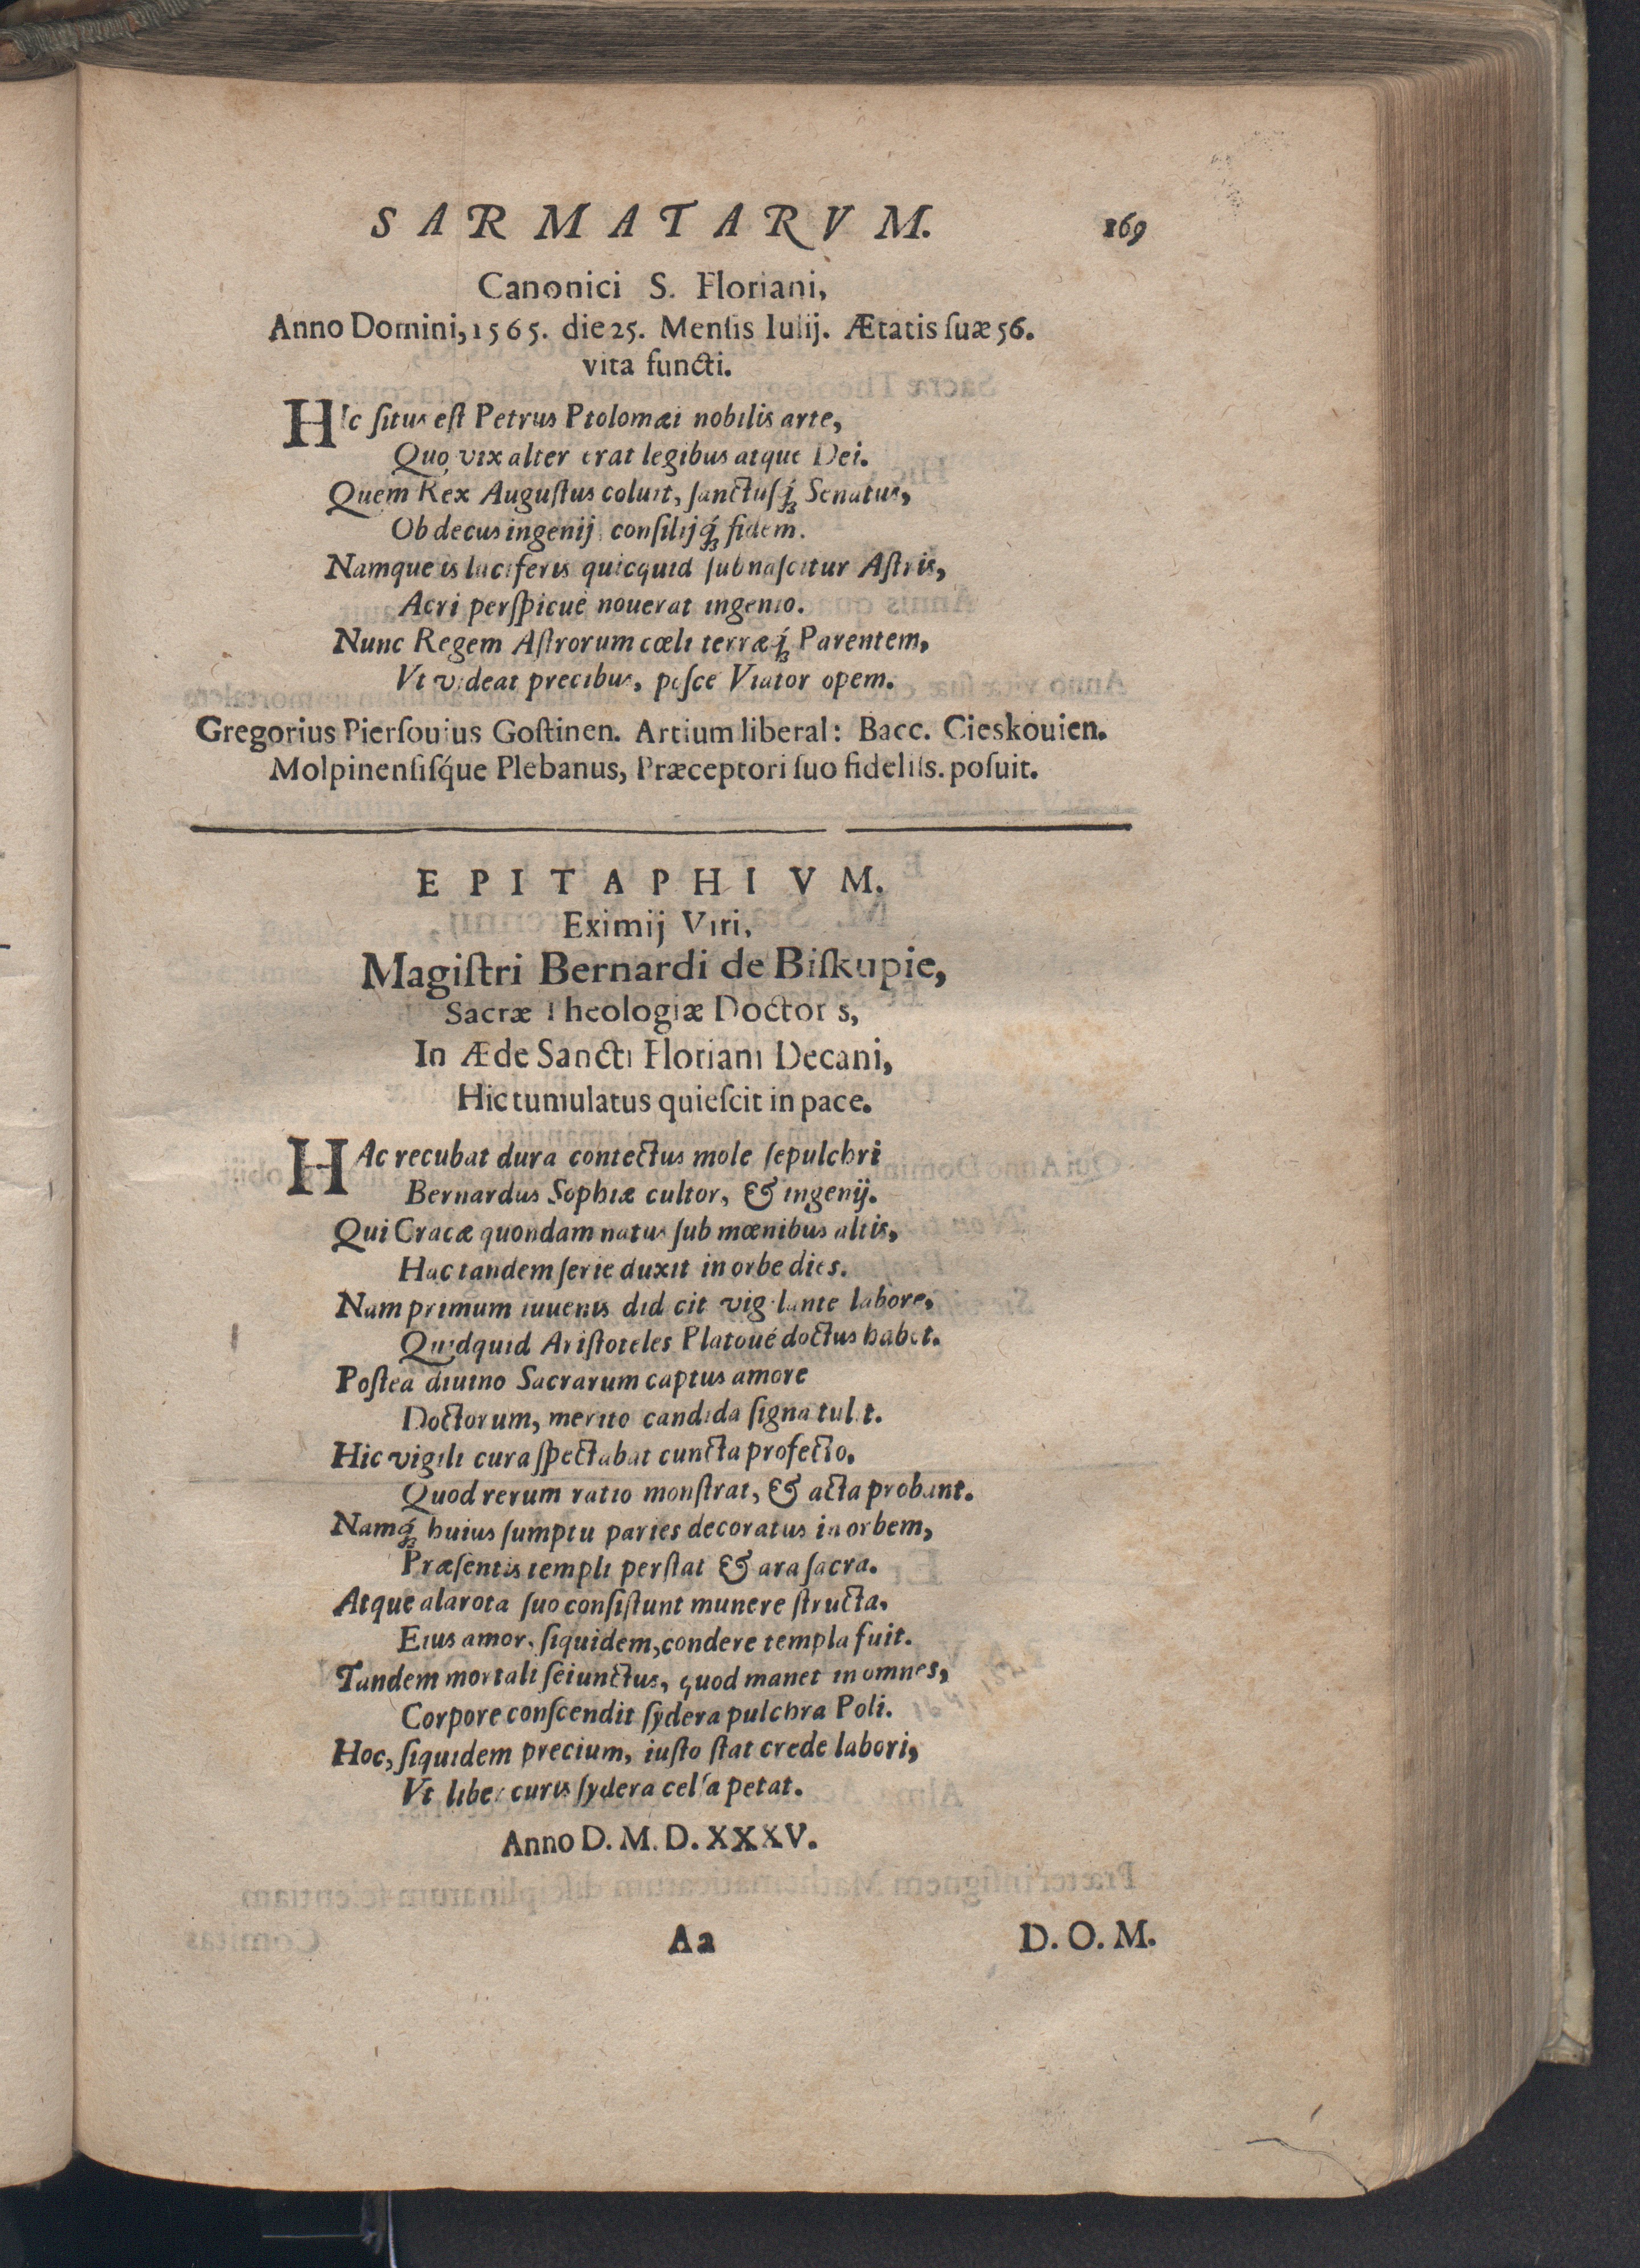 SARMATARVM. 169
Canonici S. Floriani,
Anno Domini, 1565. die 25. Mensis Iulij. Ætatis ſuæ 56.
vita functi.
HIc ſitus eſt Petrus Ptolomæi nobilis arte,
Quo vix alter erat legibus atque Dei.
Quem Rex Auguſtus coluit, ſanctuſq́; Senatus,
Ob decus ingenij conſilijq́; fidem.
Namque is luciferis quicquid ſubnaſcitur Aſtris,
Acri perſpicuè nouerat ingenio.
Nunc Regem Aſtrorum cœli terræq́; Parentem,
Vt videat precibus, poſce Viator opem.
Gregorius Pierſouius Goſtinen. Artium liberal: Bacc. Cieskouien.
Molpinenſiſq́ue Plebanus, Præceptori ſuo fideliſs. poſuit.
EPITAPHIVM.
Eximij Viri,
Magiſtri Bernardi de Biſkupie,
Sacræ Theologiæ Doctor s,
In Æde Sancti Floriani Decani,
Hic tumulatus quieſcit in pace.
HAc recubat dura contectus mole ſepulchri
Bernardus Sophiæ cultor, & ingenij.
Qui Cracæ quondam natus ſub mœnibus altis,
Hac tandem ſerie duxit in orbe dies.
Nam primum iuuenis did cit vig lante labore,
Quidquid Ariſtoteles Platoué doctus habet.
Poſtea diuino Sacrarum captus amore
Doctorum, merito candida ſigna tulit.
Hic vigili cura ſpectabat cuncta profecto,
Quod rerum ratio monſtrat, & acta probant.
Namq́; huius ſumptu paries decoratus in orbem,
Præſentis templi perſtat & ara ſacra.
Atque alarota ſuo conſiſtunt munere ſtructa,
Eius amor, ſiquidem, condere templa fuit.
Tandem mortali ſeiunctus, quod manet in omnes,
Corpore conſcendit ſydera pulchra Poli.
Hoc, ſiquidem precium, iuſto ſtat crede labori,
Vt liber curis ſydera celſa petat.
Anno D. M. D. XXXV.
Aa D. O. M.